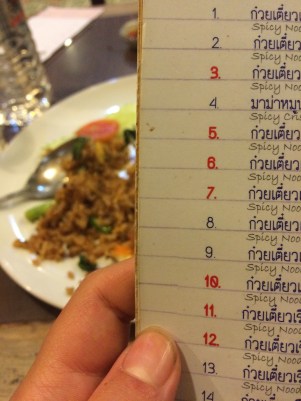 1. ก๋วยเตี๋ยว
Spicy Nood
2. ก๋วยเตี๋ยว
Spicy Nood
3. ก๋วยเตี๋ยว
Spicy Nood
4. มาม่าหมู
Spicy Cris
5. ก๋วยเตี๋ยว
Spicy Nood
6. ก๋วยเตี๋ยว
Spicy Nood
7. ก๋วยเตี๋ยว
Spicy Nood
8. ก๋วยเตี๋ยว
Spicy Nood
9. ก๋วยเตี๋ยว
Spicy Nood
10. ก๋วยเตี๋ยว
Spicy Nood
11. ก๋วยเตี๋ยวเรื
Spicy Nood
12. ก๋วยเตี๋ยวเรื
Spicy Nood
13. ก๋วยเตี๋ยวเรื
Spicy Nood
14. ก๋วยเตี๋ยวเรื